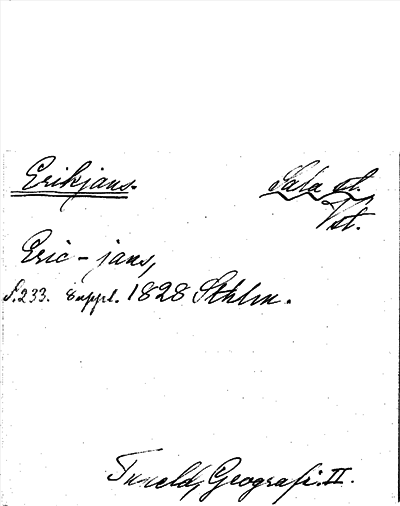 Erikjans.
Sala st.
Vst.
Eric-jans,
S. 233. 8 uppl. 1828 Sthlm.
Tuneld, Geografi. II.